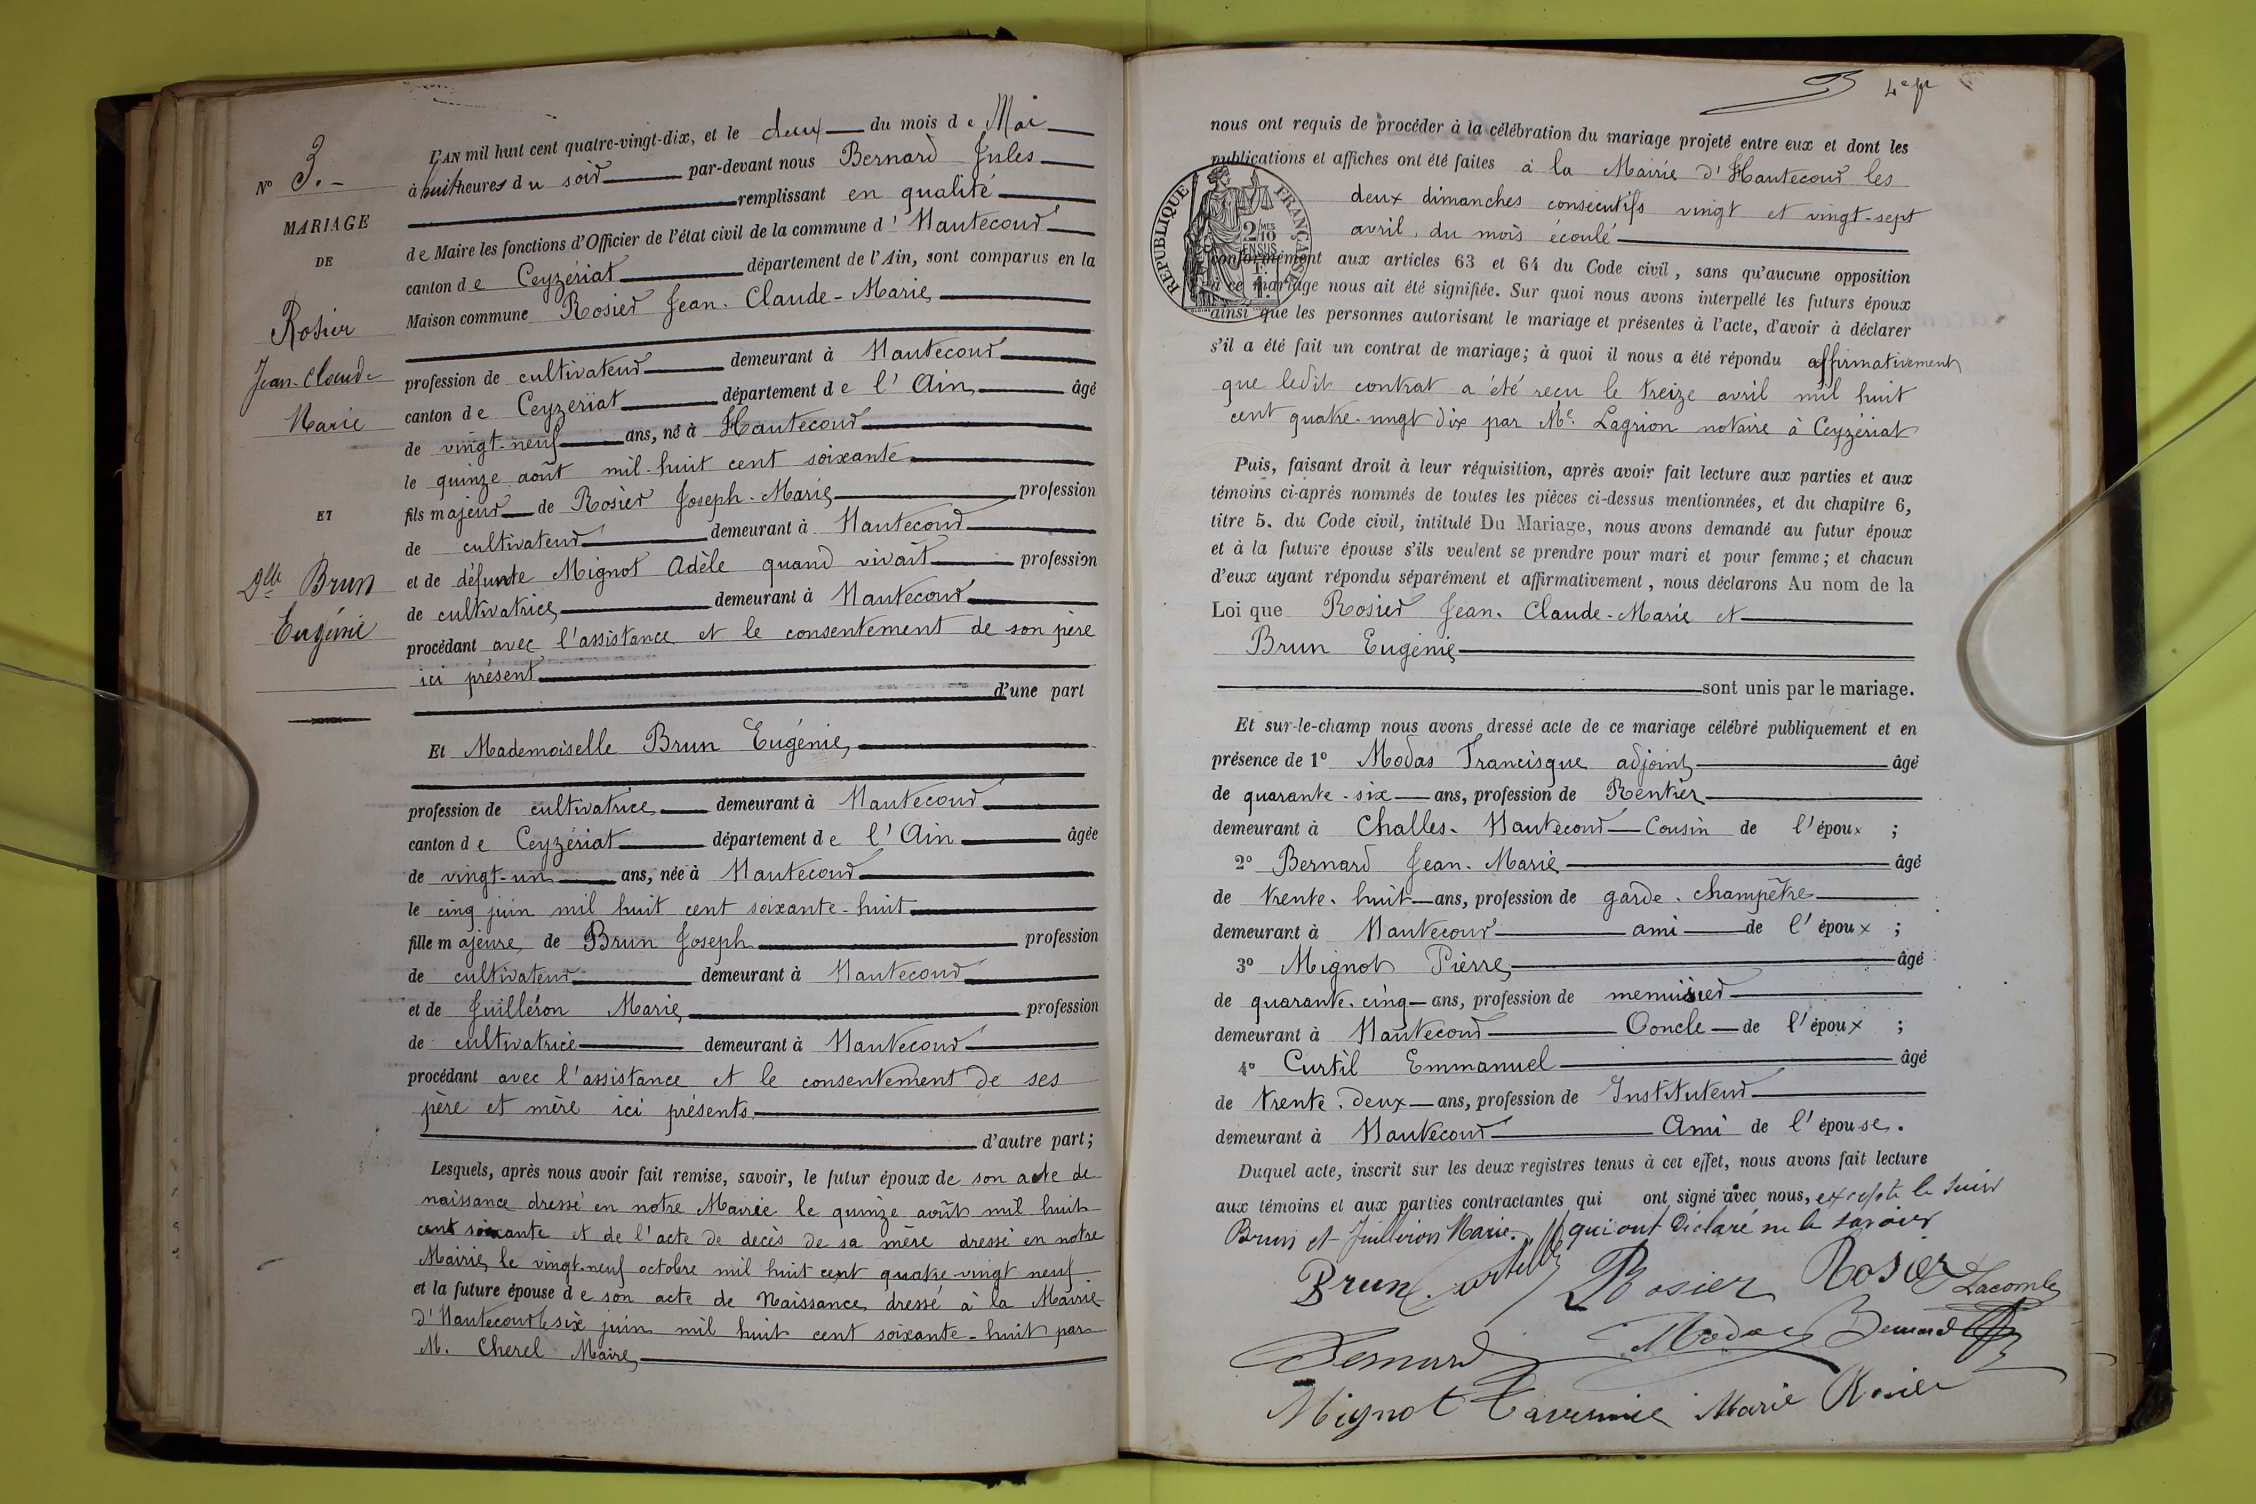 N° 3.-
MARIAGE
DE
Rosier
Jean-Claude
Marie
ET
Dlle Brun
Eugénie
L'AN mil huit cent quatre-vingt-dix, et le deux du mois de Mai
à huit heures du soir par-devant nous Bernard Jules
remplissant en qualité
de Maire les fonctions d'Officier de l'état civil de la commune d'Hautecour
canton de Ceyzériat département de l'Ain, sont comparus en la
Maison commune Rosier Jean-Claude-Marie
profession de cultivateur demeurant à Hautecour
canton de Ceyzeriat département de l'Ain âgé
de vingt-neuf ans, né à Hautecour
le quinze août mil-huit cent soixante
fils majeur de Rosier Joseph-Marie profession
de cultivateur demeurant à Hautecour
et de défunte Mignot Adèle quand vivait profession
de cultivatrice demeurant à Hautecour
procédant avec l'assistance et le consentement de son père
ici présent
d'une part
Et Mademoiselle Brun Eugénie
profession de cultivatrice demeurant à Hautecour
canton de Ceyzériat département de l'Ain âgée
de vingt-un ans, née à Hautecour
le cinq juin mil huit cent soixante-huit
fille majeure de Brun Joseph profession
de cultivateur demeurant à Hautecour
et de Juilléron Marie profession
de cultivatrice demeurant à Hautecour
procédant avec l'assistance et le consentement de ses
père et mère ici présents
d'autre part;
Lesquels, après nous avoir fait remise, savoir, le futur époux de son acte de
naissance dressé en notre Mairie le quinze août mil huit
cent soixante et de l'acte de décès de sa mère dressé en notre
Mairie, le vingt-neuf octobre mil huit cent quatre-vingt neuf
et la future épouse de son acte de Naissance dressé à la Mairie
d'Hautecour le six juin mil huit cent soixante-huit par
M. Cherel Maire
4e
nous ont requis de procéder à la célébration du mariage projeté entre eux et dont les
publications et affiches ont été faites à la Mairie d'Hautecour les
deux dimanches consécutifs vingt et vingt-sept
avril, du mois écoulé
RÉPUBLIQUE FRANÇAISE
2/10 MES
EN SUS
conformément aux articles 63 et 64 du Code civil, sans qu'aucune opposition
à ce mariage nous ait été signifiée. Sur quoi nous avons interpellé les futurs époux
ainsi que les personnes autorisant le mariage et présentes à l'acte, d'avoir à déclarer
s'il a été fait un contrat de mariage; à quoi il nous a été répondu affirmativement
que ledit contrat a été reçu le treize avril mil huit
cent quatre-vingt dix par Me. Lagrion notaire à Ceyzériat
Puis, faisant droit à leur réquisition, après avoir fait lecture aux parties et aux
témoins ci-après nommés de toutes les pièces ci-dessus mentionnées, et du chapitre 6,
titre 5. du Code civil, intitulé Du Mariage, nous avons demandé au futur époux
et à la future épouse s'ils veulent se prendre pour mari et pour femme; et chacun
d'eux ayant répondu séparément et affirmativement, nous déclarons Au nom de la
Loi que Rosier Jean-Claude-Marie et
Brun Eugénie
sont unis par le mariage.
Et sur-le-champ nous avons dressé acte de ce mariage célébré publiquement et en
présence de 1° Modas Francisque adjoint âgé
de quarante-six ans, profession de Rentier
demeurant à Challes-Hautecour Cousin de l'époux ;
2° Bernard Jean-Marie âgé
de trente-huit ans, profession de garde-champêtre
demeurant à Hautecour ami de l'époux ;
3° Mignot Pierre âgé
de quarante-cinq ans, profession de menuisier
demeurant à Hautecour Oncle de l'époux ;
4° Curtil Emmanuel âgé
de trente-deux ans, profession de Instituteur
demeurant à Hautecour Ami de l'épouse.
Duquel acte, inscrit sur les deux registres tenus à cet effet, nous avons fait lecture
aux témoins et aux parties contractantes qui ont signé avec nous, excepté le sieur
Brun et Juilleron Marie. qui ont déclaré ne le savoir
Brun Rosier Rosier Lacombe
Bernard Modas Bernard
Mignot Tavernier Marie Rosier